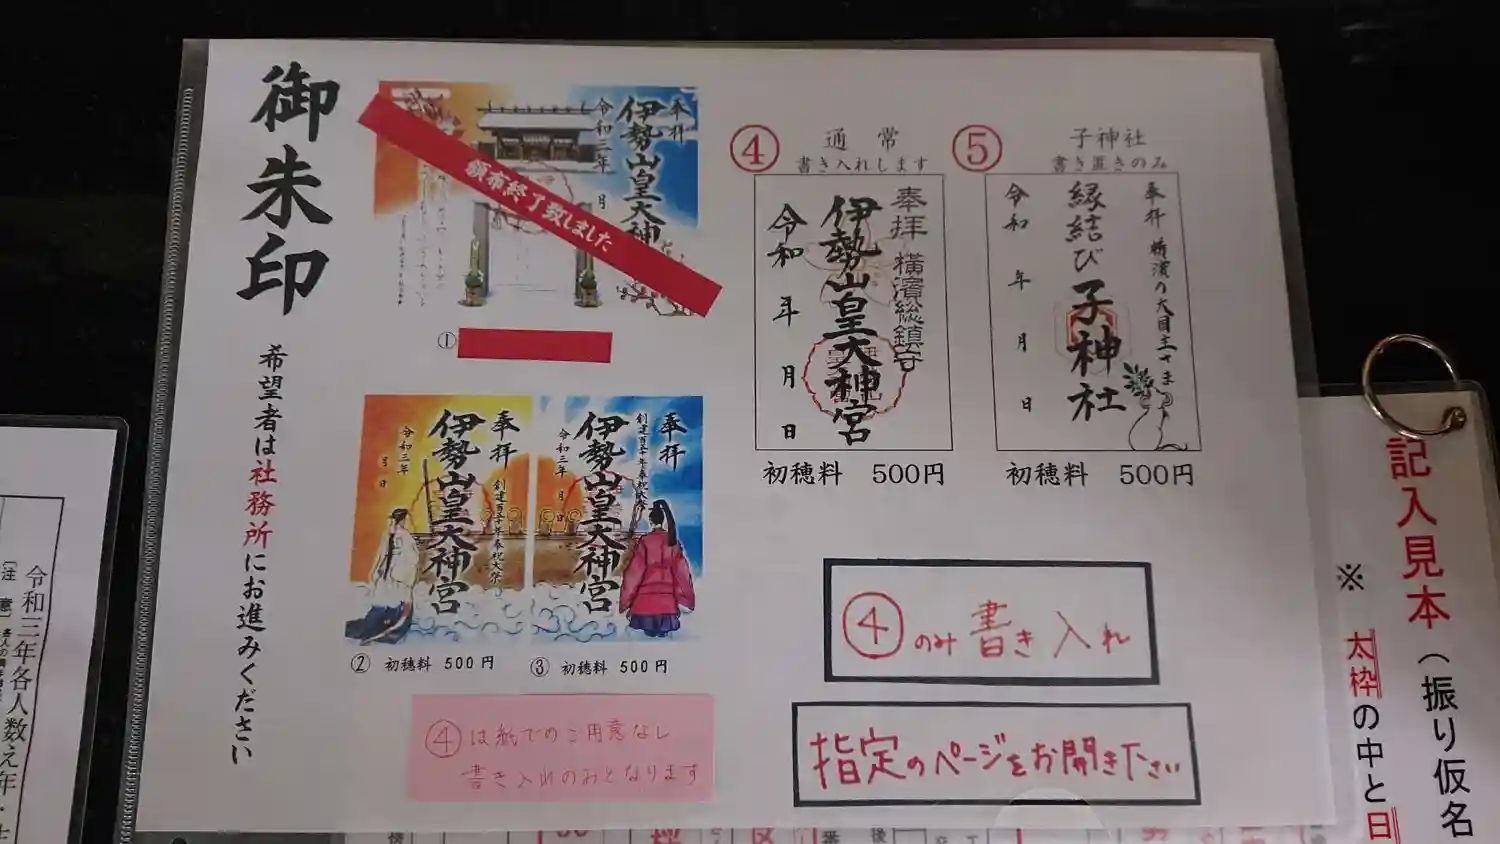 御朱印
希望者は社務所にお進みください
奉拝
伊勢山皇大神
令和三年
月
頒布終了致しました
①
奉拝
創建百五十年奉祝大祭
伊勢山皇大神宮
令和三年
月 日
② 初穂料 500円
奉拝
創建百五十年奉祝大祭
伊勢山皇大神宮
令和三年 月 日
③ 初穂料 500円
④は紙でのご用意なし
書き入れのみとなります
④
通常
書き入れします
奉拝 横濱総鎮守
伊勢山皇大神宮
令和 年 月 日
初穂料 500円
⑤
子神社
書き置きのみ
奉拝
縁結び子神社
令和 年 月 日
初穂料 500円
④のみ書き入れ
指定のページをお開き下さい
記入見本(振り仮名
※ 太枠の中と日
令和三年各人数え年・